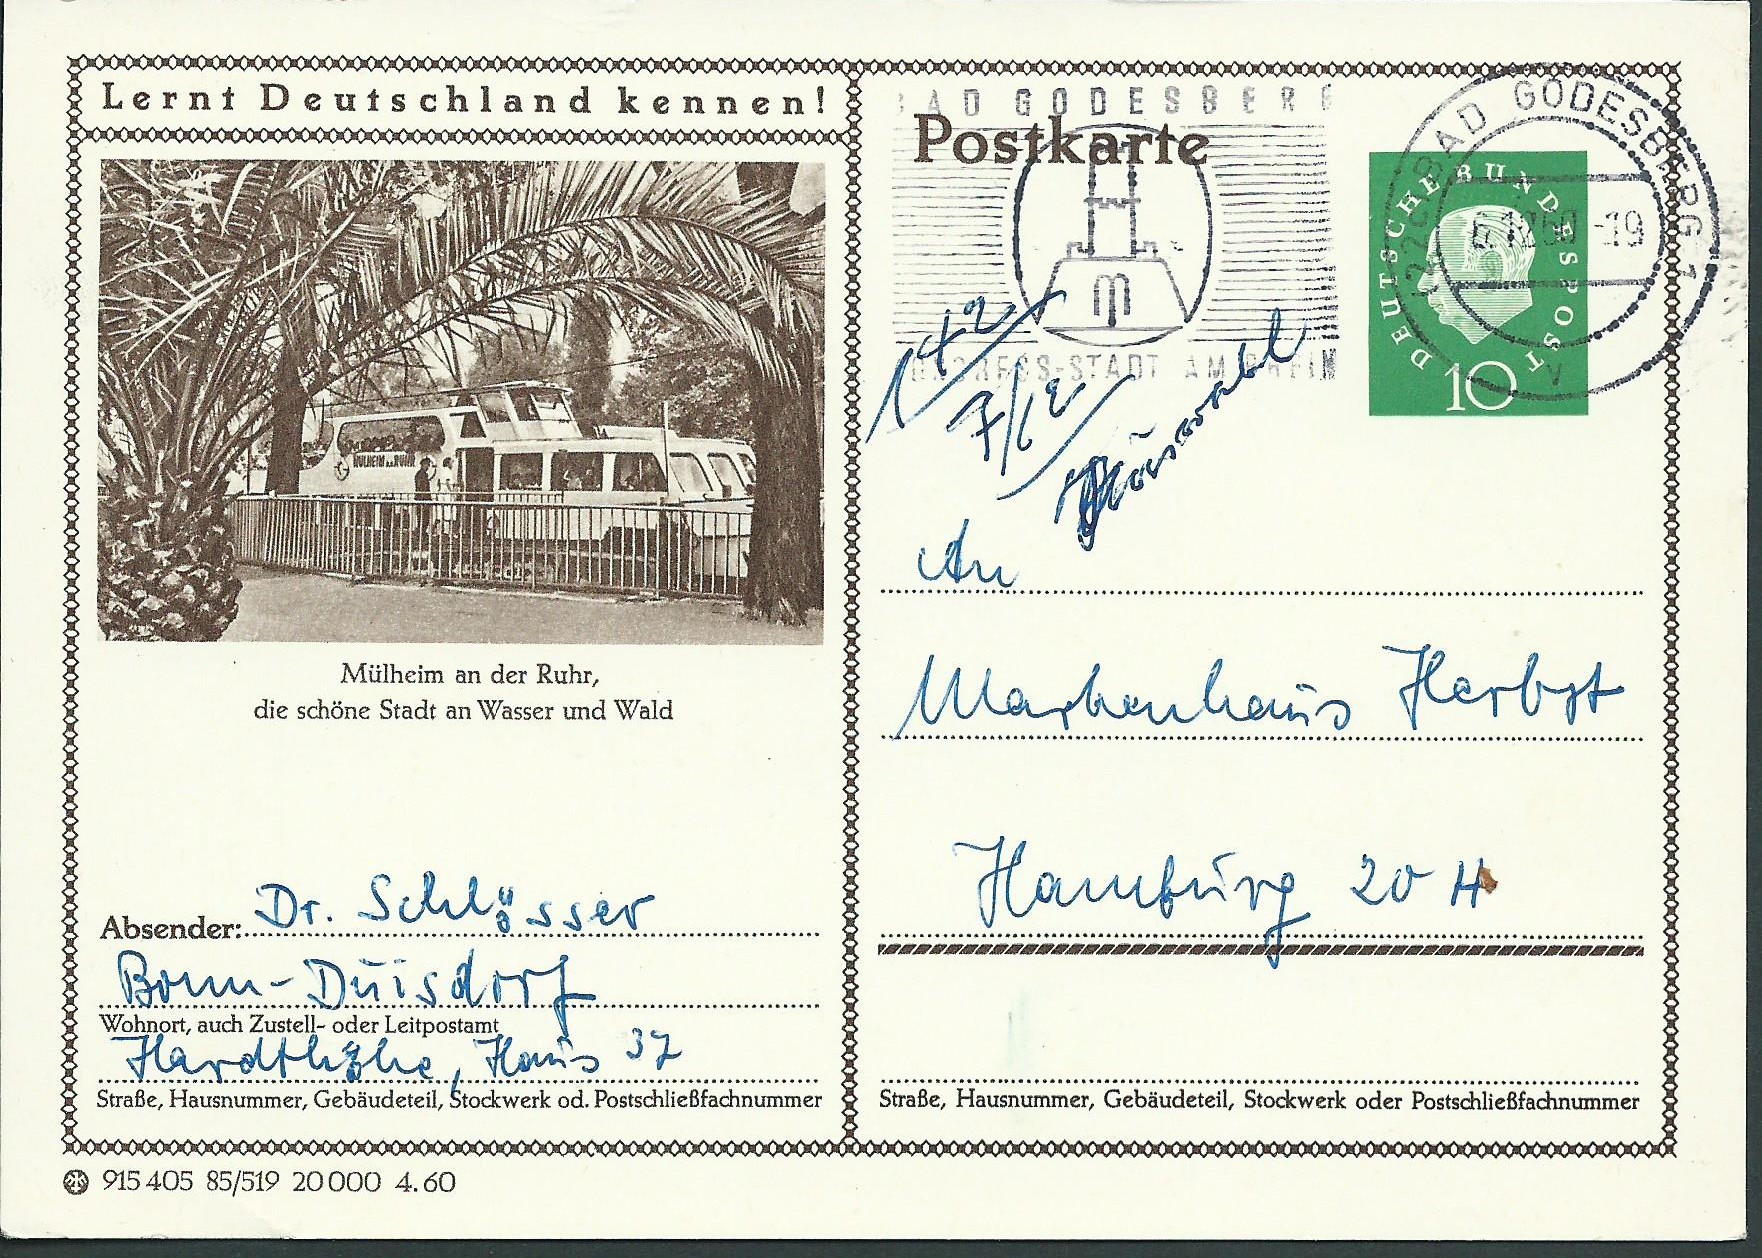 Lernt Deutschland kennen!
MÜLHEIM a.d. RUHR
Mülheim an der Ruhr,
die schöne Stadt an Wasser und Wald
Absender: Dr. Schlösser
Bonn-Duisdorf
Wohnort, auch Zustell- oder Leitpostamt
Hardthöhe, Haus 37
Straße, Hausnummer, Gebäudeteil, Stockwerk od. Postschließfachnummer
915 405 85/519 20 000 4.60
BAD GODESBERG
Postkarte
KONGRESS-STADT AM RHEIN
(22c) BAD GODESBERG 1
6.12.60-19
v
DEUTSCHE BUNDESPOST
10
142
7/12
An
Markenhaus Herbst
Hamburg 20 H
Straße, Hausnummer, Gebäudeteil, Stockwerk oder Postschließfachnummer